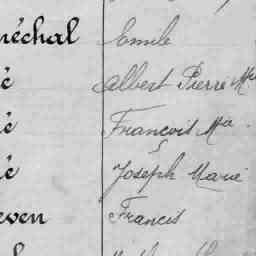 néchal Emile
é Albert Pierre Mie
é François Mie
é Joseph Marie
even Francis